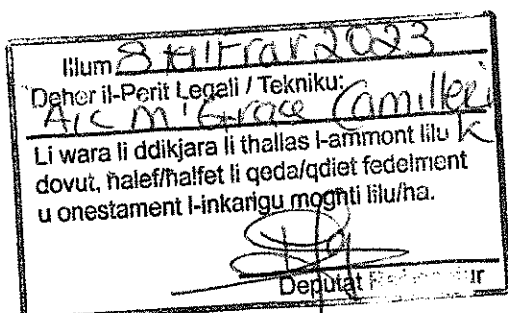 Illum 8 ta' Frar 2023
Deher il-Perit Legali / Tekniku:
AIC M'Grace Camilleri K
Li wara li ddikjara li thallas l-ammont lilu
dovut, ħalef/ħalfet li qeda/qdiet fedelment
u onestament l-inkarigu mogħti lilu/ha.
Deputat